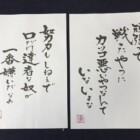 頑張って
戦ったやつに
カッコ悪いやつなんて
いないよな
努力もしねぇで
口だけ達者な奴が
一番嫌いだよ